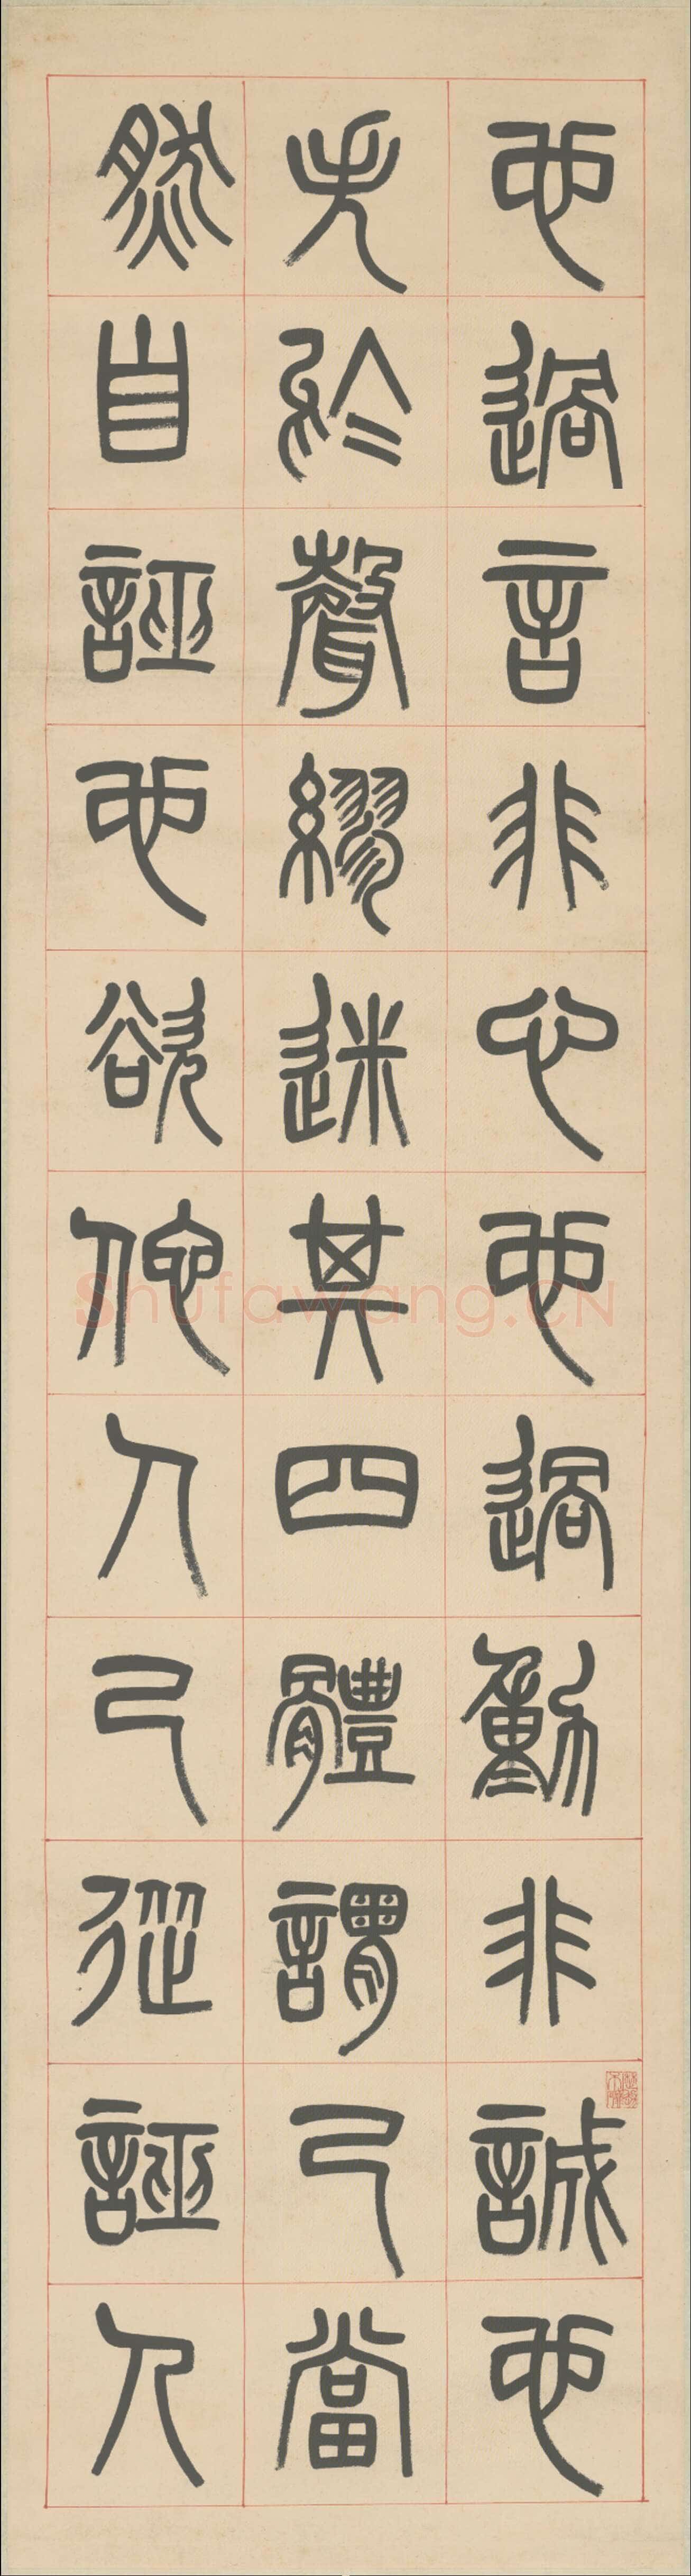 也過言非心也過動非誠也
失於聲繆迷其四體謂己當
然自誣也欲他人己從誣人
Shufawang.CN